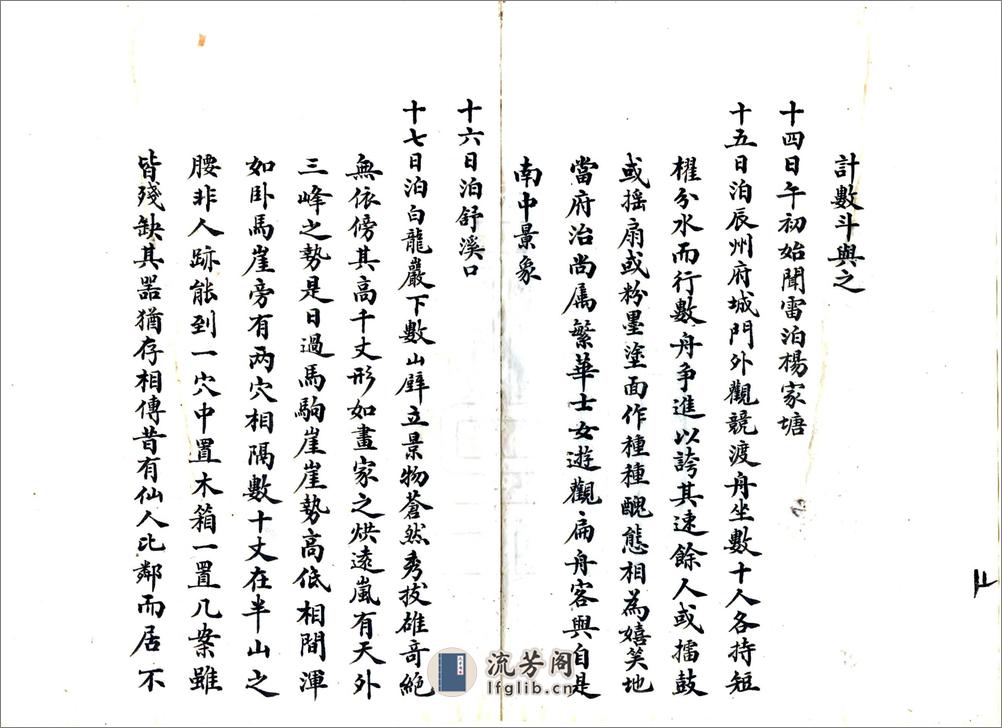 計數斗與之
十四日午初始聞雷泊楊家塘
十五日泊辰州府城門外觀競渡舟坐數十人各持短
櫂分水而行數舟爭進以誇其速餘人或擂鼓
或摇扇或粉墨塗面作種種醜態相為嬉笑地
當府治尚属繁華士女遊觀扁舟容與自是
南中景象
十六日泊舒溪口
十七日泊白龍巖下數山壁立景物蒼然秀拔雄奇絕
無依傍其高千丈形如畫家之烘遠嵐有天外
三峰之勢是日過馬駒崖崖勢高低相間渾
如卧馬崖旁有两穴相隔數十丈在半山之
腰非人跡能到一穴中置木箱一置几案雖
皆殘缺其器猶存相傳昔有仙人比鄰而居不
流芳阁
lfglib.cn